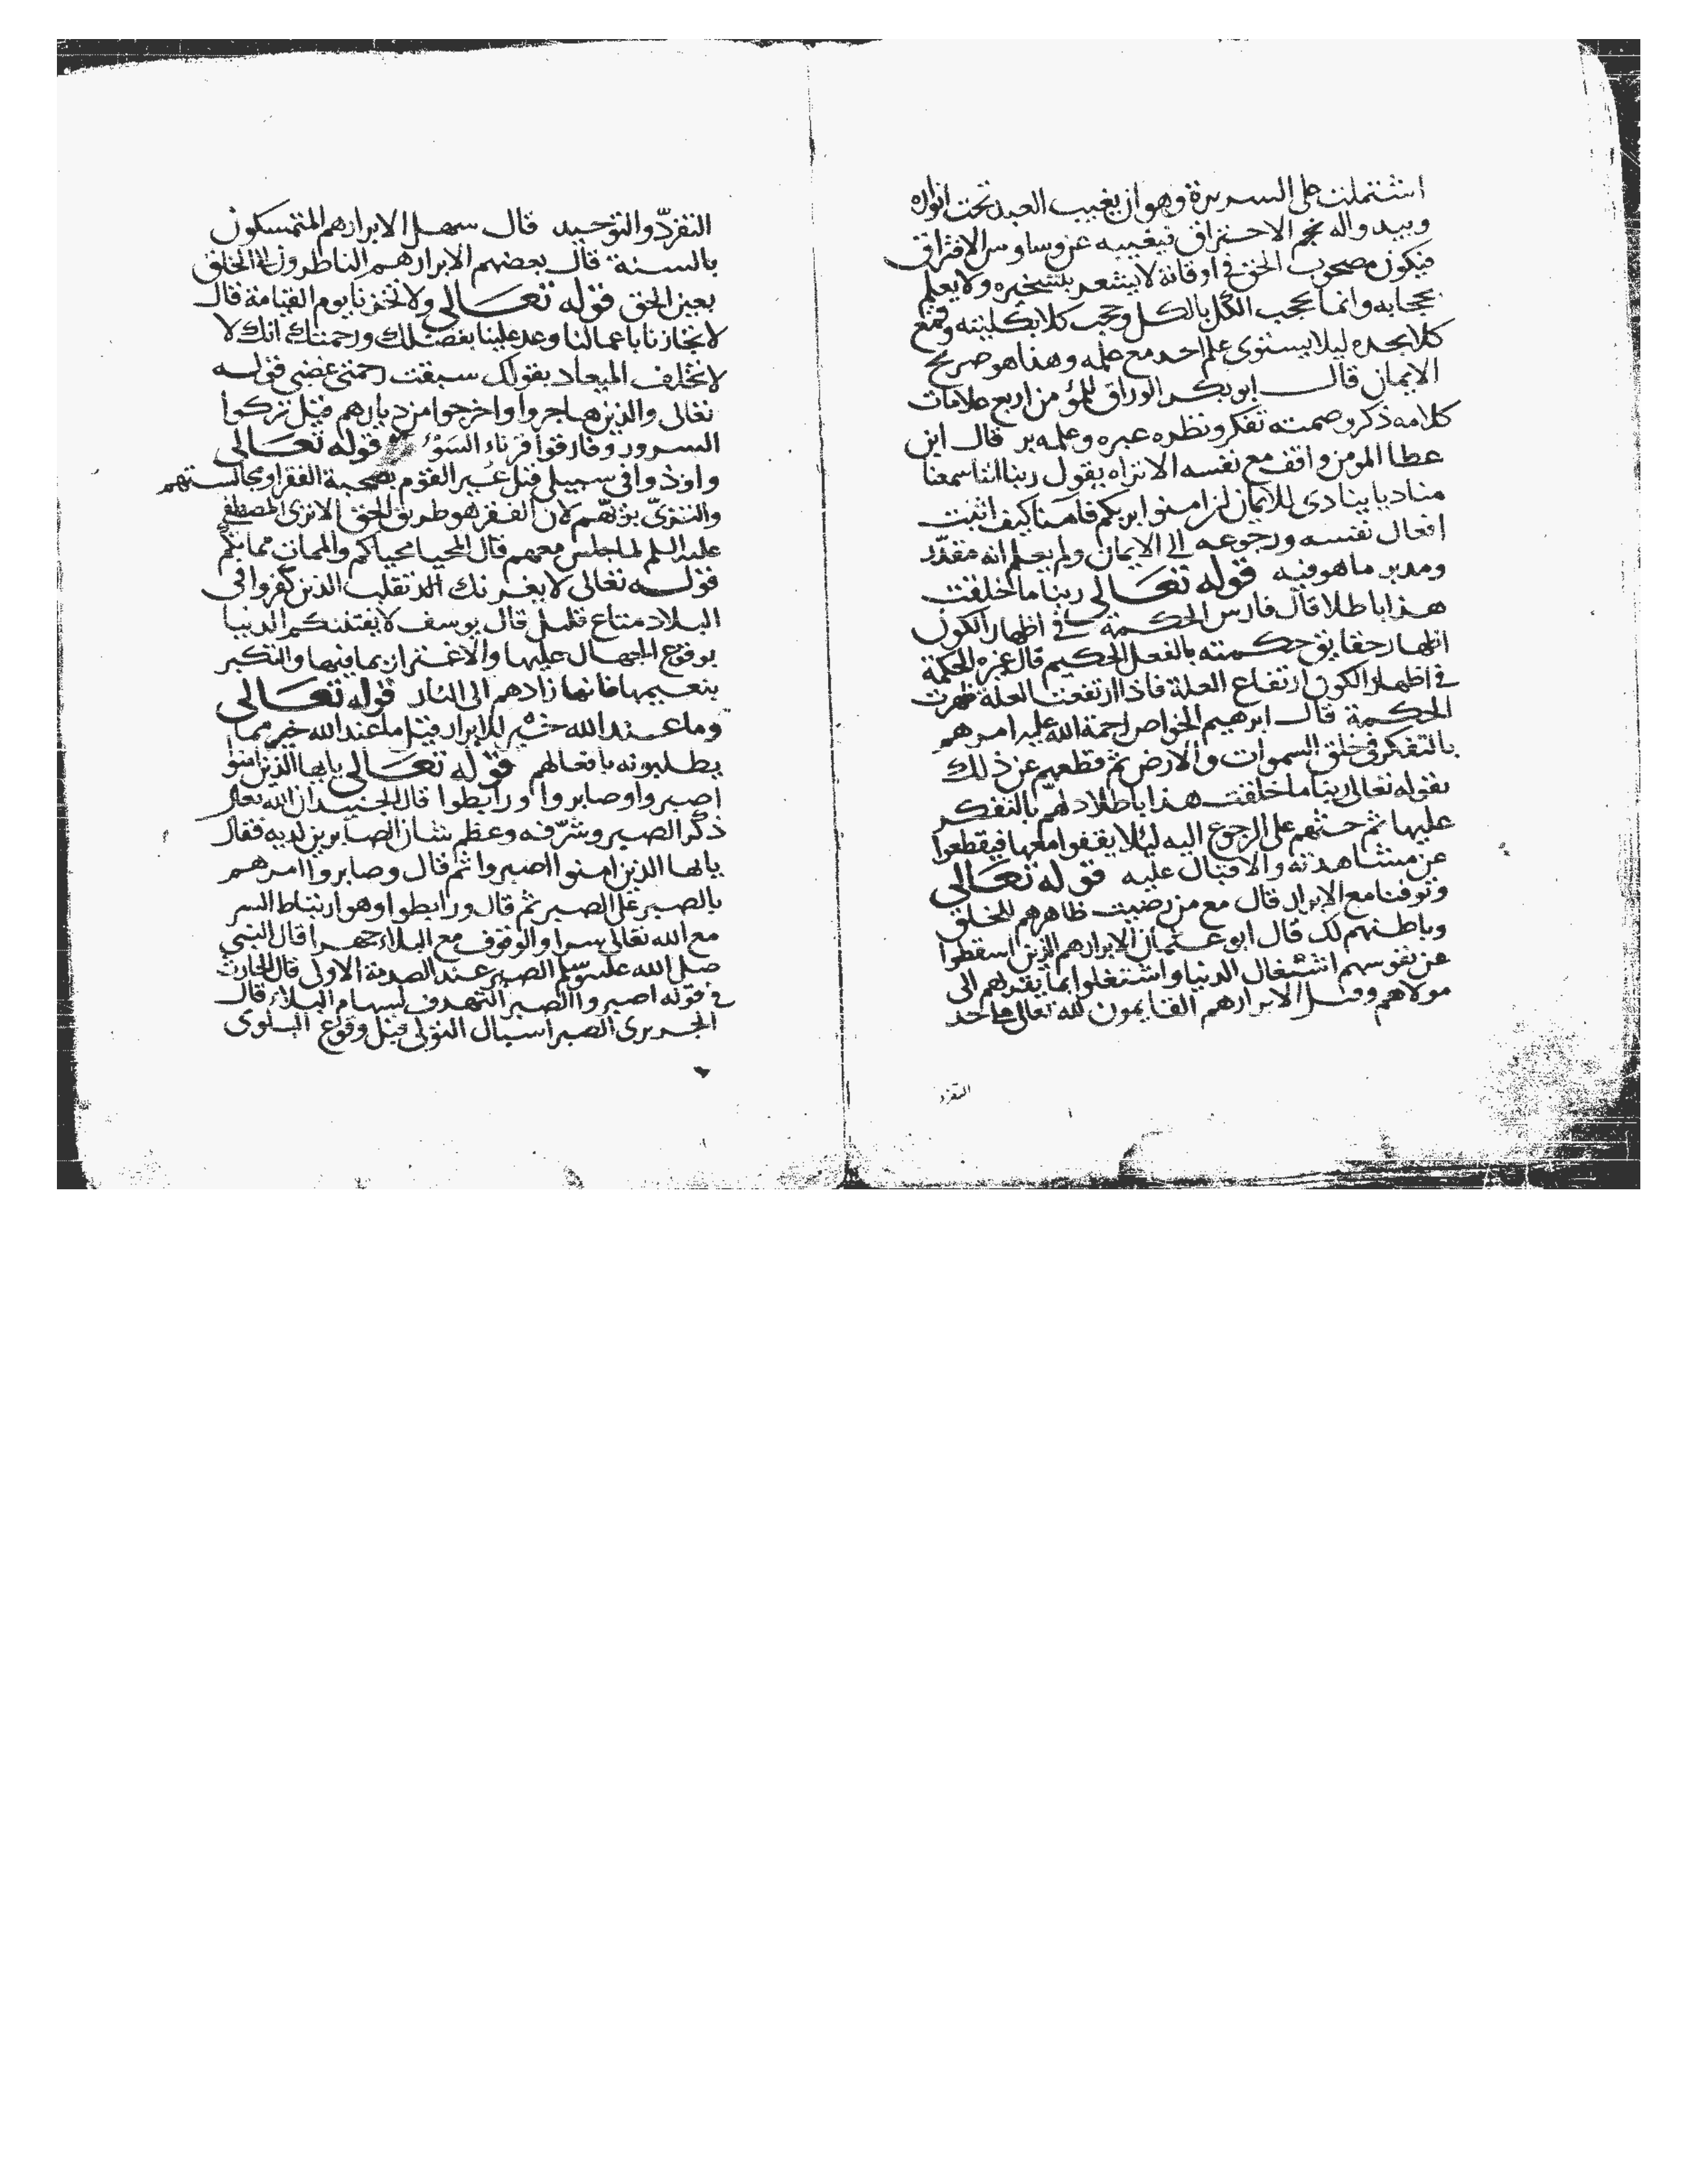 اشتملت على السريرة وهو ان يغيب العبد تحت انواره
ويبدو اله نجم الاحتراق فيغيبه عن وساوس الافتراق
فيكون مصحوب الحق في اوقاته لا يشعر بتسخيره ولا يعلم
بحجابه وانما حجب الكل بالكل وحجب كلا بكليته وقمع
كلا بحده ليلا يستوى علم احد مع علمه وهذا هو صريح
الايمان قال ابو بكر الوراق للمؤمن اربع علامات
كلامه ذكر وصمته تفكر ونظره عبره وعلمه بر قال ابن
عطا المومن واقف مع نفسه الا تراه يقول ربنا اننا سمعنا
مناديا ينادى للايمان ان امنوا بربكم فامنا كيف اثبت
افعال نفسه ورجوعه الى الايمان ولم يعلم انه مقدر
ومدبر ما هو فيه قوله تعالى ربنا ما خلقت
هذا باطلا قال فارس الحكمة في اظهار الكون
اظهار حقايق حكمته بالفعل الحكيم قال غيره الحكمة
في اظهار الكون ارتفاع العلة فاذا ارتفعت العلة ظهرت
الحكمة قال ابرهيم الخواص رحمة الله عليه امرهم
بالتفكر في خلق السموات والارض ثم قطعهم عن ذلك
بقوله تعالى ربنا ما خلقت هذا باطلا دلهم بالتفكر
عليها ثم حثهم على الرجوع اليه ليلا يقفوا معها فيقطعوا
عن مشاهدته والاقبال عليه قوله تعالى
وتوفنا مع الابرار قال مع من رضيت ظاهرهم للخلق
وباطنهم لك قال ابو عثمان الابرار هم الذين اسقطوا
عن نفوسهم اشتغال الدنيا واشتغلوا بما يقربهم الى
مولاهم وقيل الابرار هم القايمون لله تعالى على حد
التفرد
التفرد والتوحيد قال سهل الابرار هم المتمسكون
بالسنة قال بعضهم الابرار هم الناظرون الى الخلق
بعين الحق قوله تعالى ولا تخزنا يوم القيامة قال
لا تجازنا باعمالنا وعد علينا بفضلك ورحمتك انك لا
لا تخلف الميعاد بقولك سبقت رحمتى غضبى قوله
تعالى والذين هاجروا واخرجوا من ديارهم قيل تركوا
السرور وفارقوا قرناء السوء قوله تعالى
واوذوا فى سبيلى قيل عير القوم بصحبة الفقرا ومجالستهم
والتزى بزيهم لان الفقر هو طريق الحق الا ترى المصطفى
عليه السلم لما جلس معهم قال المحيا محياكم والممات مماتكم
قوله تعالى لا يغرنك تقلب الذين كفروا فى
البلاد متاع قليل قال يوسف لا يفتننكم الدنيا
بوقوع الجهال عليها والاغترار بما فيها والتكبر
بنعيمها فانها زادهم الى النار قوله تعالى
وما عند الله خير للابرار قيل ما عند الله خير مما
يطلبونه بافعالهم قوله تعالى يايها الذين امنوا
اصبروا وصابروا ورابطوا قال الجنيد ان الله تعالى
ذكر الصبر وشرفه وعظم شان الصابرين لديه فقال
يايها الذين امنوا اصبروا ثم قال وصابروا امرهم
بالصبر على الصبر ثم قال ورابطوا وهو ارتباط السر
مع الله تعالى سرا والوقوف مع البلاء جهرا قال النبي
صلى الله عليه وسلم الصبر عند الصدمة الاولى قال الحارث
في قوله اصبروا الصبر التهدف لسهام البلاء قال
الجريرى الصبر اسبال التولى قبل وقوع البلوى